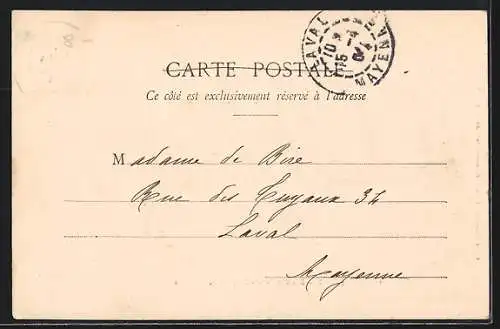 LAVAL MAYENNE
10 15 -4 04
CARTE POSTALE
Ce côté est exclusivement réservé à l'adresse
Madame de Bire
Rue des Tuyaux 34
Laval
Mayenne